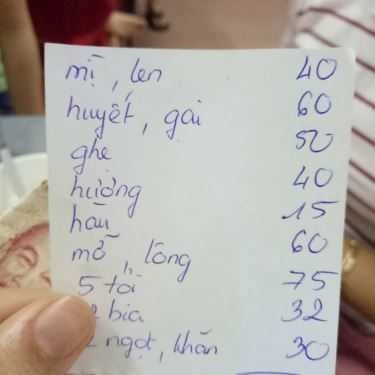 mị, len 40
huyết, gai 60
ghẹ 50
hương 40
hàu 15
mỡ, lông 60
5 tô 75
bia 32
ngọt, khăn 30